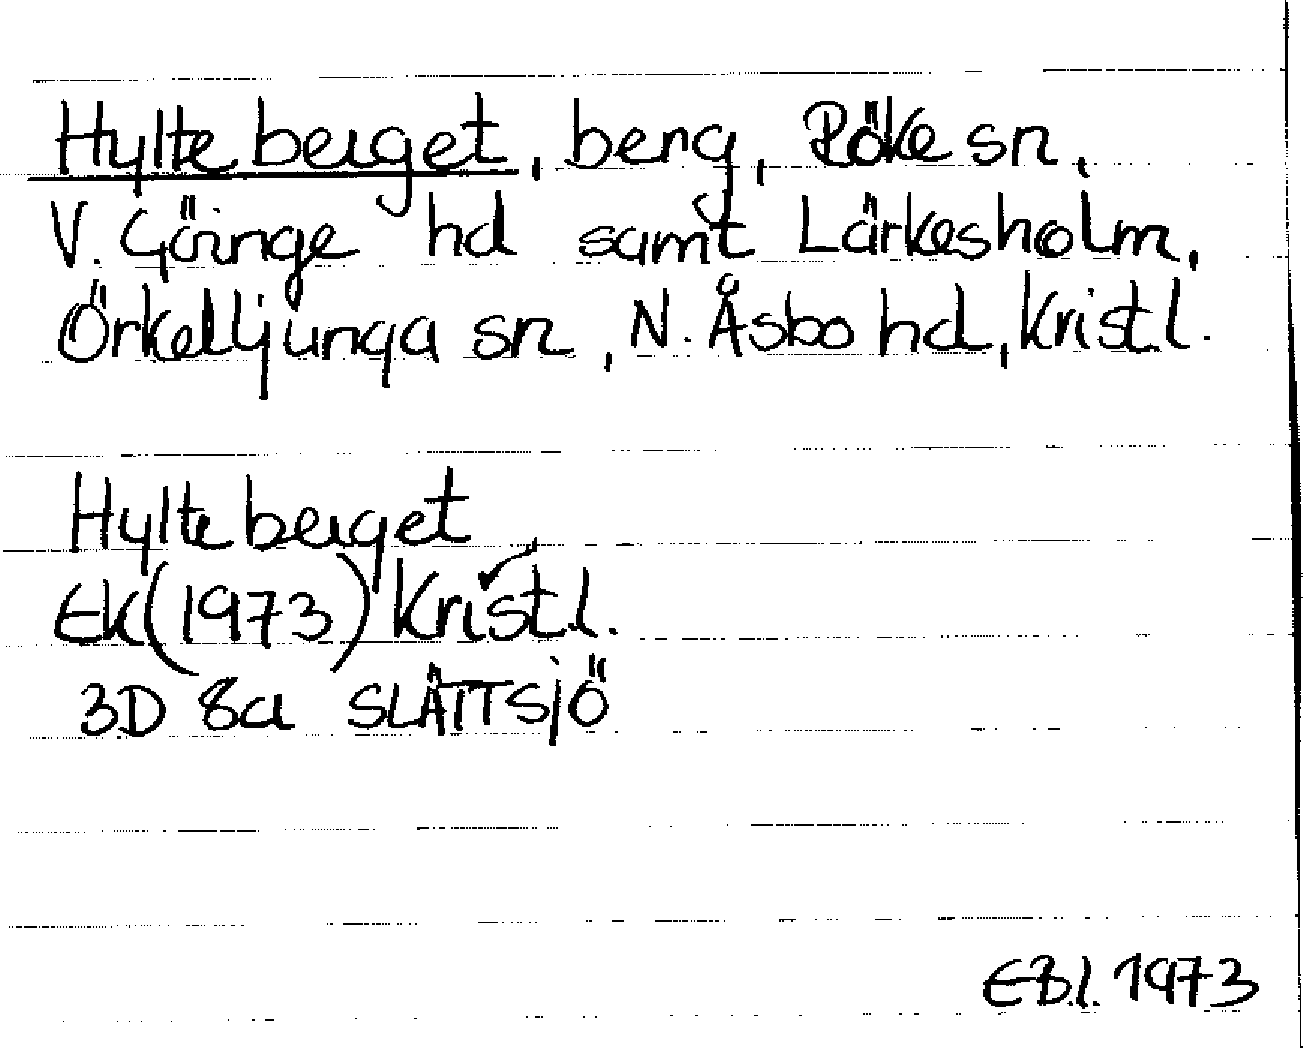 Hylteberget, berg, Röke sn,
V. Göinge hd samt Lärkesholm,
Örkelljunga sn, N. Åsbo hd, Kristl.
Hylteberget
EK (1973) Kristl.
3D 8a SLÄTTSJÖ
EBl. 1973